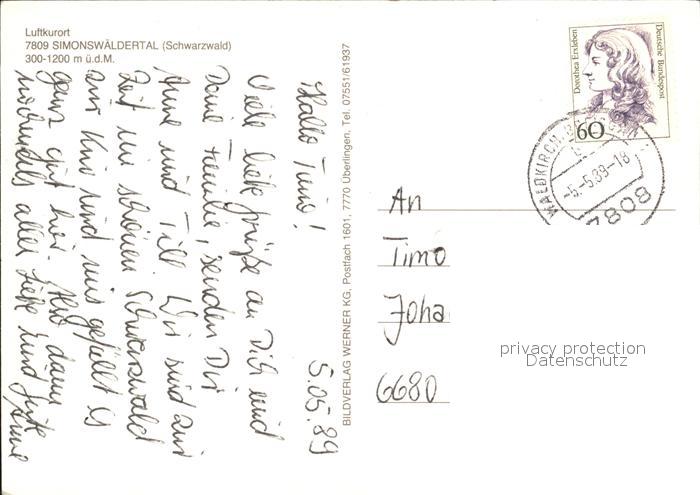 Luftkurort
7809 SIMONSWÄLDERTAL (Schwarzwald)
300-1200 m ü.d.M.
5.05.89
Hallo Timo!
Viele liebe Grüße an Dich und
Deine Familie, senden Dir
Anne und Till. Wir sind zur
Zeit im schönen Schwarzwald
zur Kur und uns gefällt es
ganz gut hier. Also dann
nochmals alles Liebe und Gute
Anne
BILDVERLAG WERNER KG, Postfach 1601, 7770 Überlingen, Tel. 07551/61937
Dorothea Erxleben
Deutsche Bundespost
60
WALDKIRCH, BREISGAU
-5.-5.89-18
7808
An
Timo
Joha
6680
privacy protection
Datenschutz